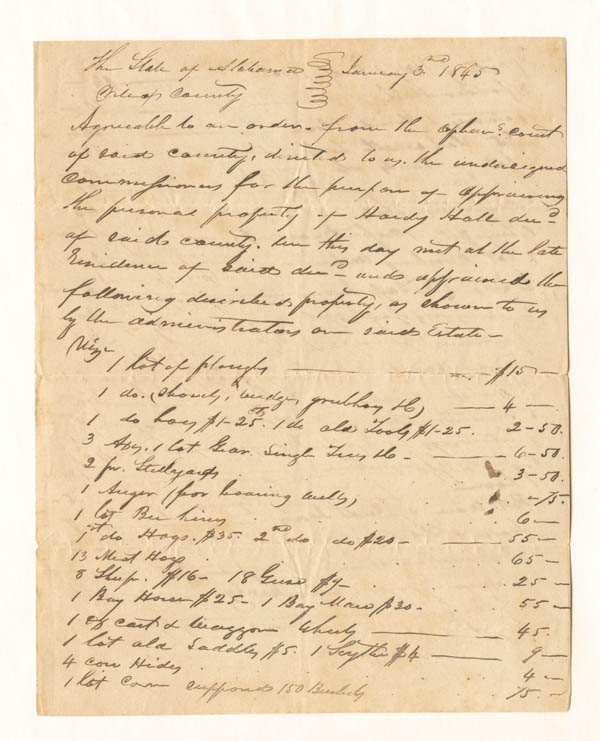 The State of Alabama January 3rd 1845
County
Agreeable to an order from the orphans court
of said county, directed to us the undersigned
Commissioners for the purpose of appraising
the personal property of Hardy Hall decd
of said county. We this day met at the late
Residence of said decd and appraised the
following described property, as shown to us
by the administrators on said Estate –
Viz
1 lot of ploughs — $15 –
1 do. (shovels, wedges, grubhoes &c) — 4 –
1 do hoes $1-25. 1 do old Tools $1-25. 2-50.
3 Axes. 1 lot Gear. Single Trees &c – 6-50.
2 pr. Stillyards 3-50
1 Auger (for boaring wells, -75.
1 lot Bee hives 6 –
1st do Hogs. $35. 2nd do. do $20 – 55 –
13 Meat Hogs 65 –
8 Sheep. $16 – 18 Geese $9 – 25 –
1 Bay Horse $25 – 1 Bay Mare $30 – 55 –
1 ox cart & Waggon Wheels — 45.
1 lot old Saddles $5. 1 Scythe $4 — 9 –
4 cow Hides 4 –
1 lot Corn supposed 150 Bushels 75. –